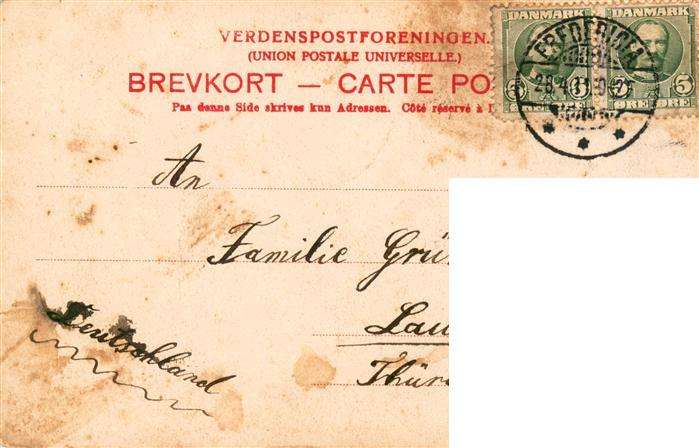 VERDENSPOSTFORENINGEN.
(UNION POSTALE UNIVERSELLE.)
BREVKORT — CARTE PO
Paa denne Side skrives kun Adressen. Côté réservé à
DANMARK DANMARK
FREDERICIA
5 5 5
ØRE ØRE
An
Familie Grü
Lau
Thür
Deutschland